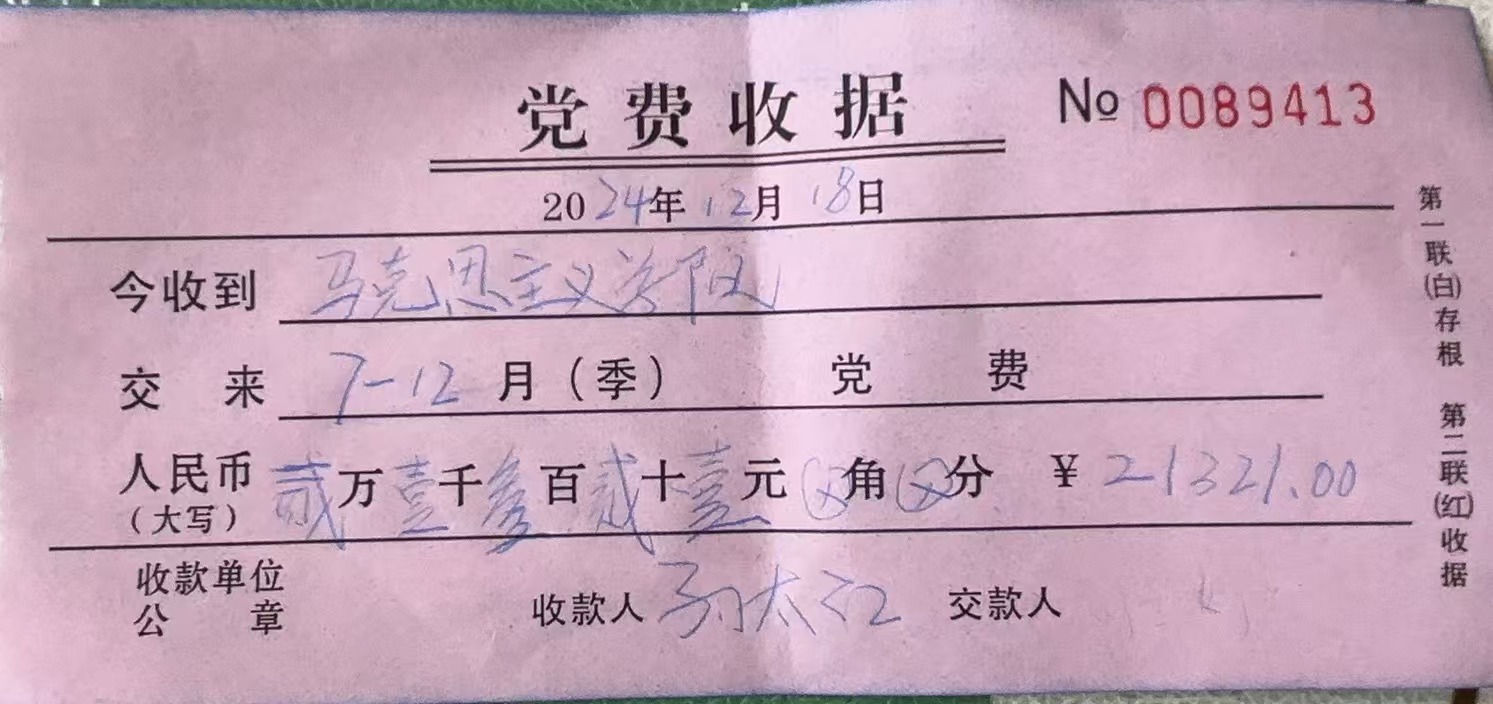 党费收据
№ 0089413
2024年12月18日
今收到 马克思主义学院
交来 7-12 月(季) 党费
人民币 贰万壹千叁百贰十壹元⊗角⊗分 ¥21321.00
(大写)
收款单位
公章
收款人 孙太江 交款人
第一联(白)存根 第二联(红)收据